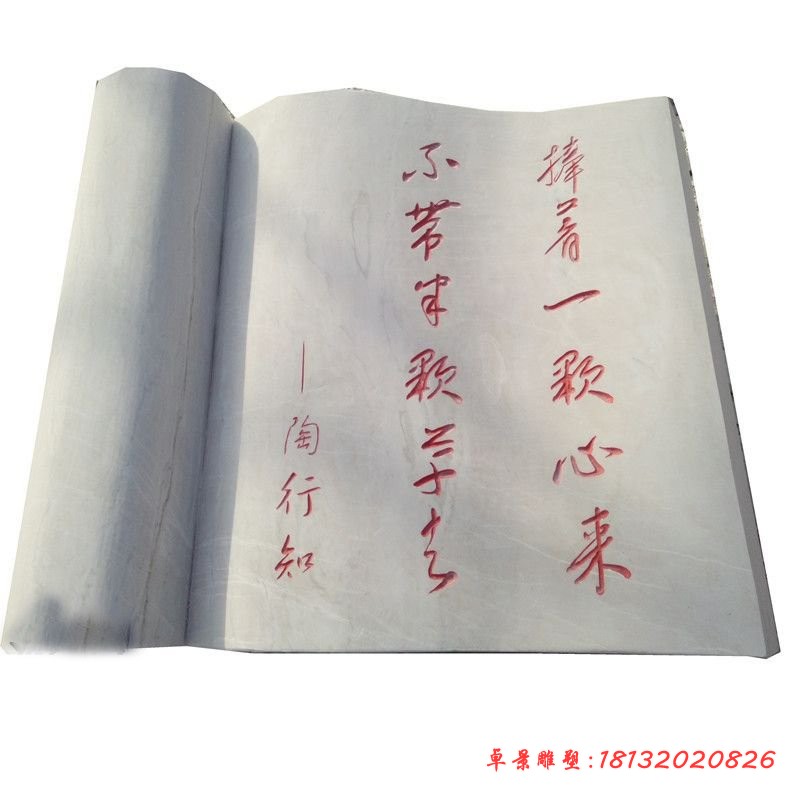 捧着一颗心来
不带半颗草去
—陶行知
卓景雕塑:18132020826